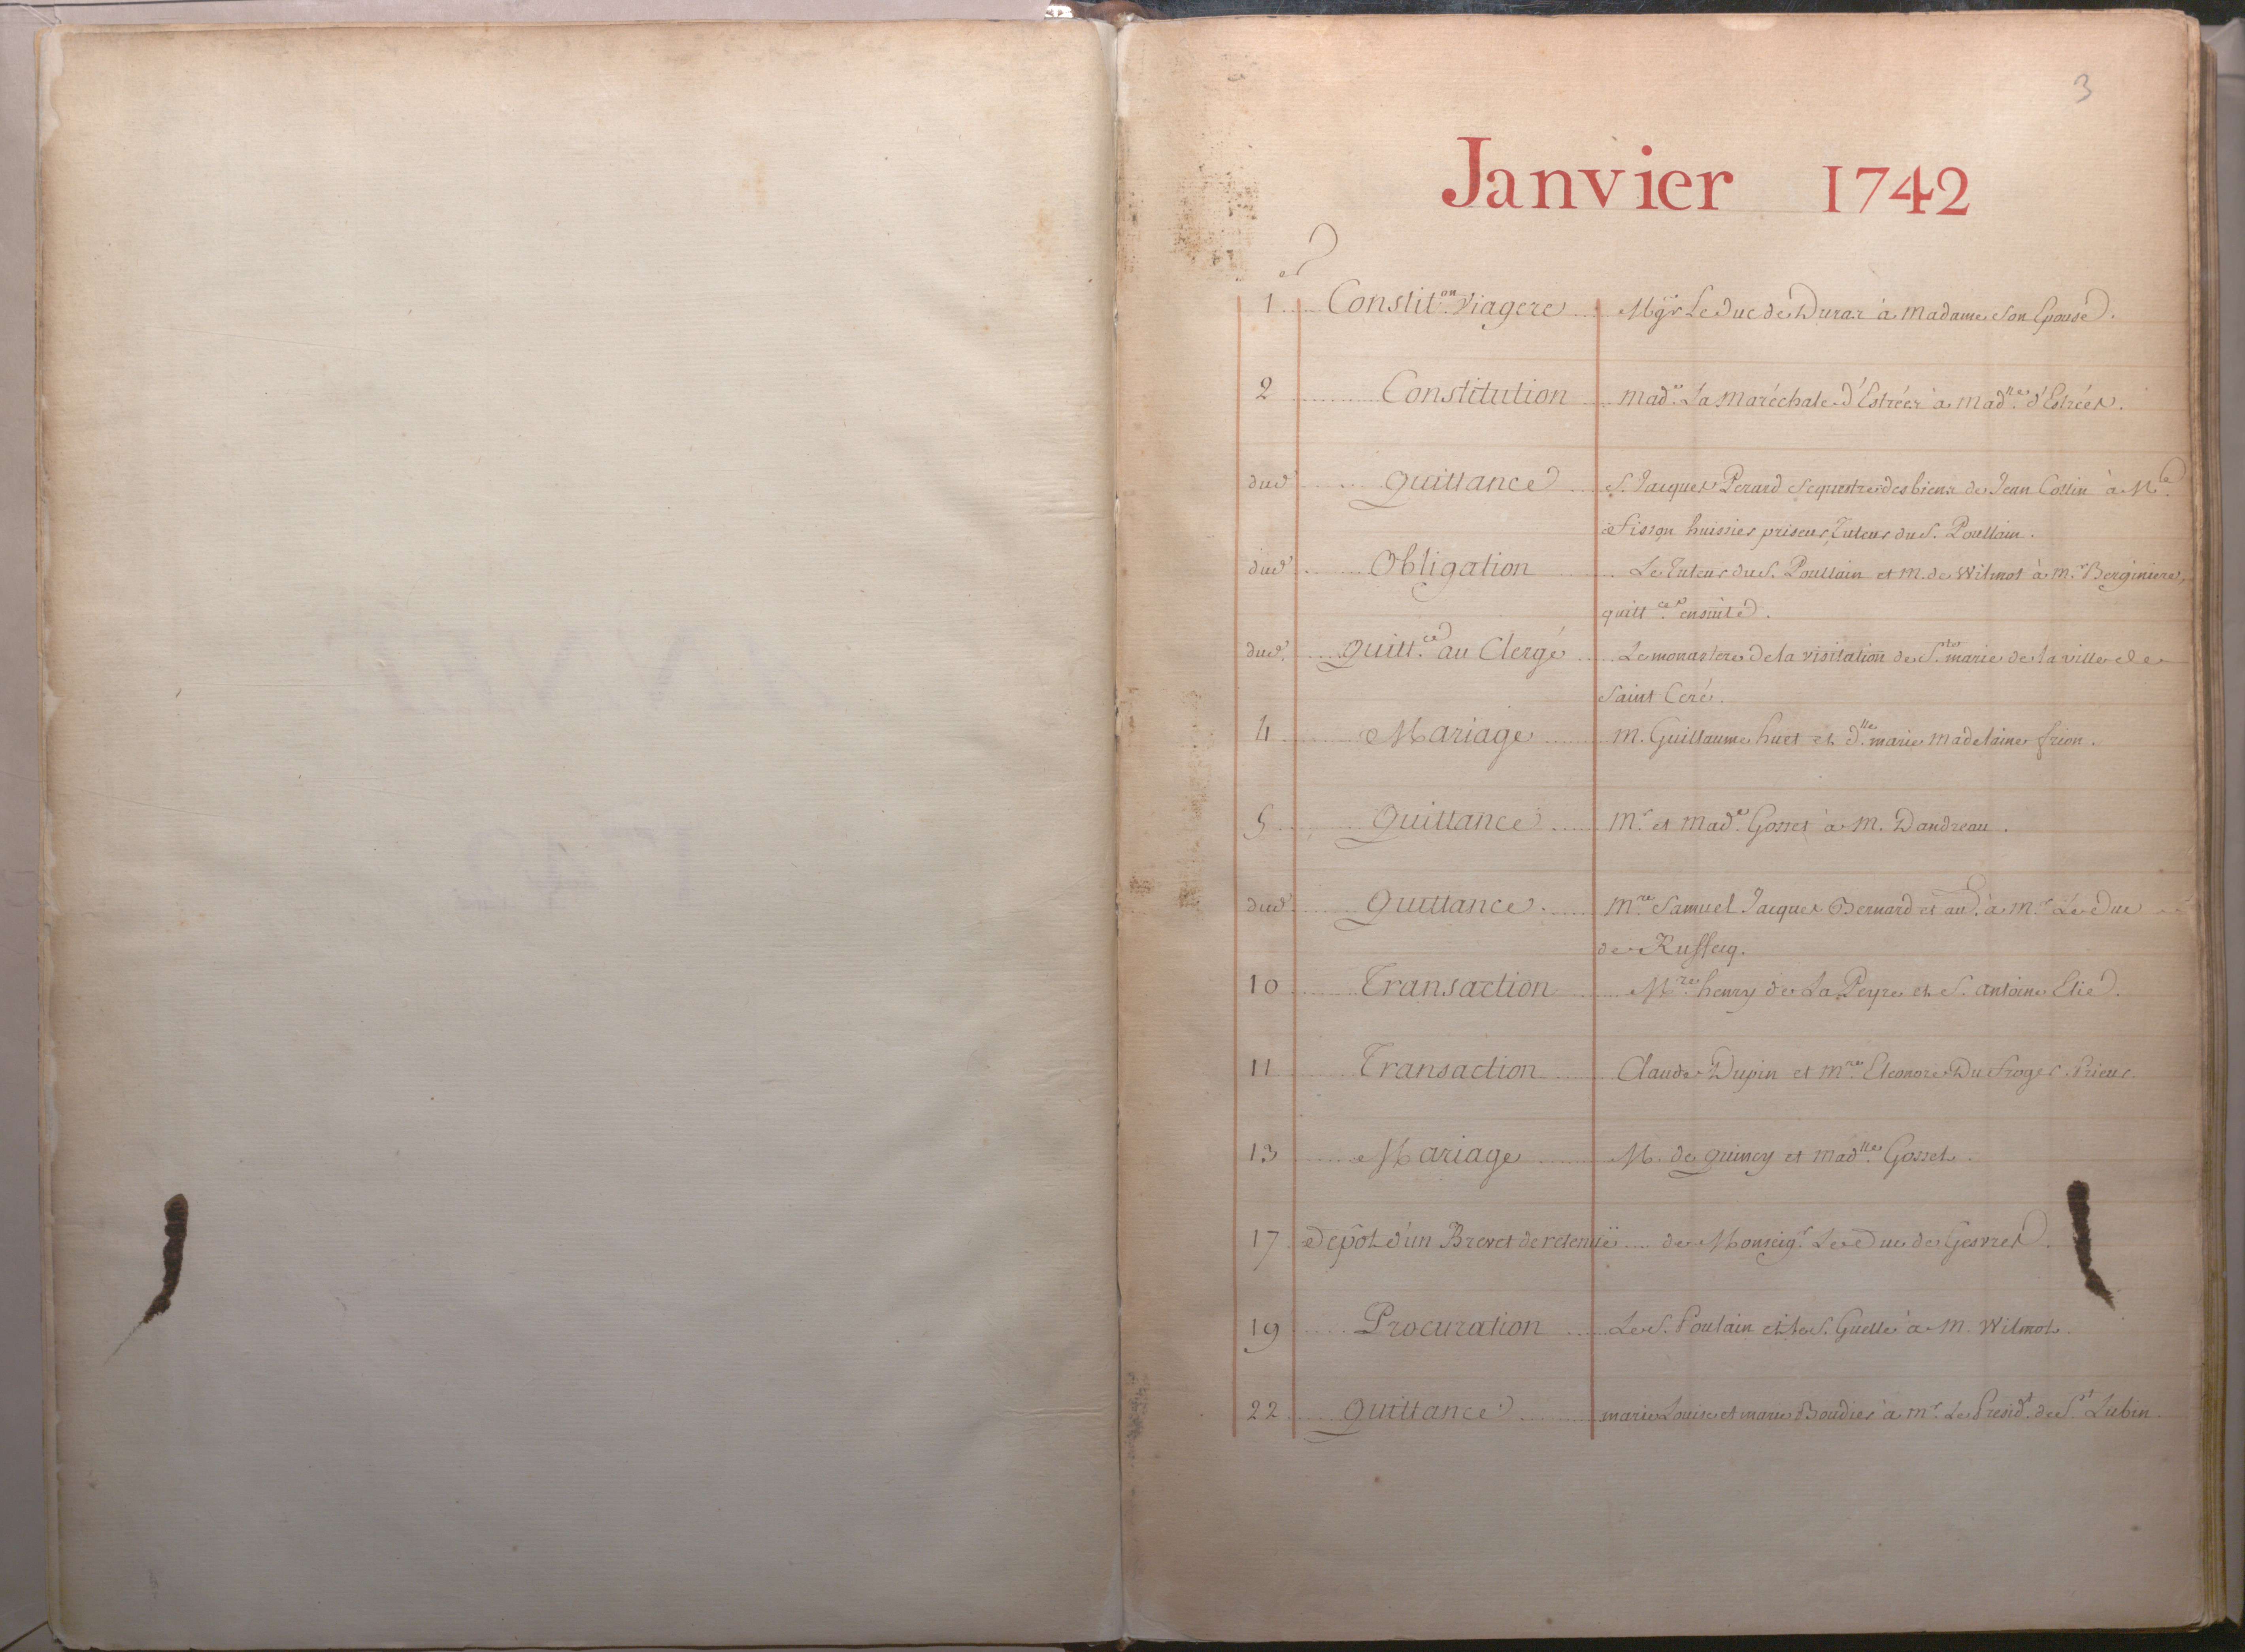 3
Janvier 1742
1er Constiton Viagere Mgr Le Duc de Duras à Madame Son Epouse.
2 Constitution Made La Maréchale d'Estrées à Madlle d'Estrées.
dud. Quittance S. Jacques Perard Sequestre des biens de Jean Cottin à Me
Fisson huissier priseur, Tuteur du S. Poullain.
dud. Obligation Le Tuteur du S. Poullain et M. de Wilmot à Mr Berginiere,
quittces ensuite.
dud. Quittce au Clergé Le monastere de la visitation de Ste marie de la ville de
Saint Ceré.
4 Mariage M. Guillaume huet et Dlle marie Madelaine frion.
5 Quittance Mr et Made Gosset à M. Dandreau.
dud. Quittance Mre Samuel Jacques Bernard et au. à Mr Le Duc
de Ruffecq.
10 Transaction Mre henry de La Peyre et S. antoine Elie.
11 Transaction Claude Dupin et Mre Eleonore Du Prieur.
13 Mariage M. de Quincy et Madlle Gosset.
17 Depôt d'un Brevet de retenüe de Monseigr Le Duc de Gesvres.
19 Procuration Le S. Poulain et le S. Guelle à M. Wilmot.
22 Quittance marie Louise et marie Boudier à Mr Le Presidt de St Lubin.